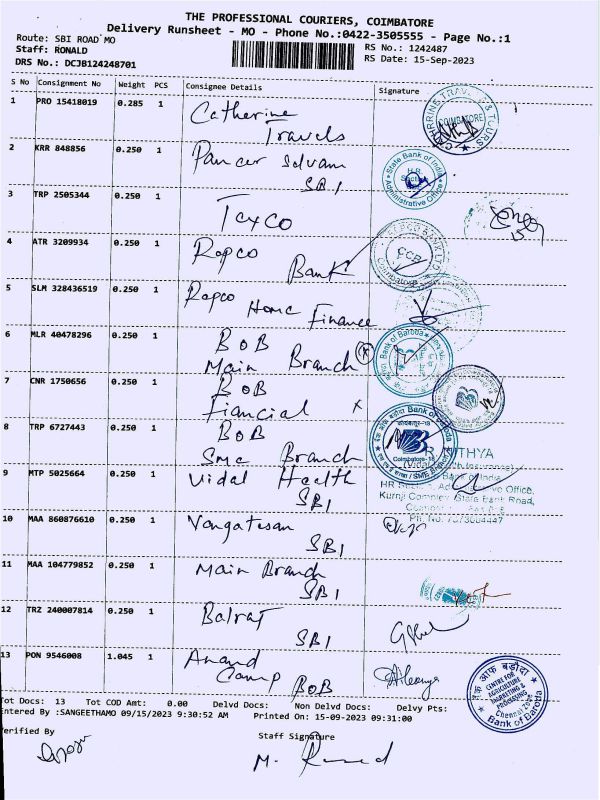 THE PROFESSIONAL COURIERS, COIMBATORE
Delivery Runsheet - MO - Phone No.:0422-3505555 - Page No.:1
Route: SBI ROAD MO
RS No.: 1242487
Staff: RONALD
RS Date: 15-Sep-2023
DRS No.: DCJB124248701
S No Consignment No Weight PCS Consignee Details Signature
1 PRO 15418019 0.285 1 Catherine
Travels
COIMBATORE
2 KRR 848856 0.250 1 Pancer Selvam
SBI
State Bank of India
H.R.
Administrative Office
3 TRP 2505344 0.250 1 Texco
4 ATR 3209934 0.250 1 Repco
Bank
CCB
5 SLM 328436519 0.250 1 Repco
Home Finance
6 MLR 40478296 0.250 1 BOB
Main Branch
Bank of Baroda
7 CNR 1750656 0.250 1 BOB
Fiancial x
8 TRP 6727443 0.250 1 BOB
SME Branch
Bank of Baroda
Coimbatore-18
9 MTP 5025664 0.250 1 Vidal Health
SBI
Office,
State Bank Road,
10 MAA 860876610 0.250 1 Vangatesan
SBI
11 MAA 104779852 0.250 1 Main Branch
SBI
12 TRZ 240007814 0.250 1 Balraj
SBI
13 PON 9546008 1.045 1 Anand
Camp BOB
बैंक ऑफ़ बड़ौदा
CENTRE FOR
AGRICULTURE
MARKETING &
PROCESSING
Bank of Baroda
Tot Docs: 13 Tot COD Amt: 0.00 Delvd Docs: Non Delvd Docs: Delvy Pts:
Entered By :SANGEETHAMO 09/15/2023 9:30:52 AM Printed On: 15-09-2023 09:31:00
Verified By
Staff Signature